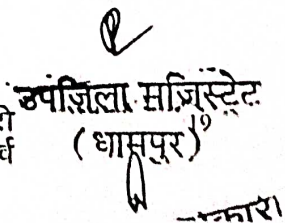 उपज़िला मजिस्ट्रेट
(धामपुर)